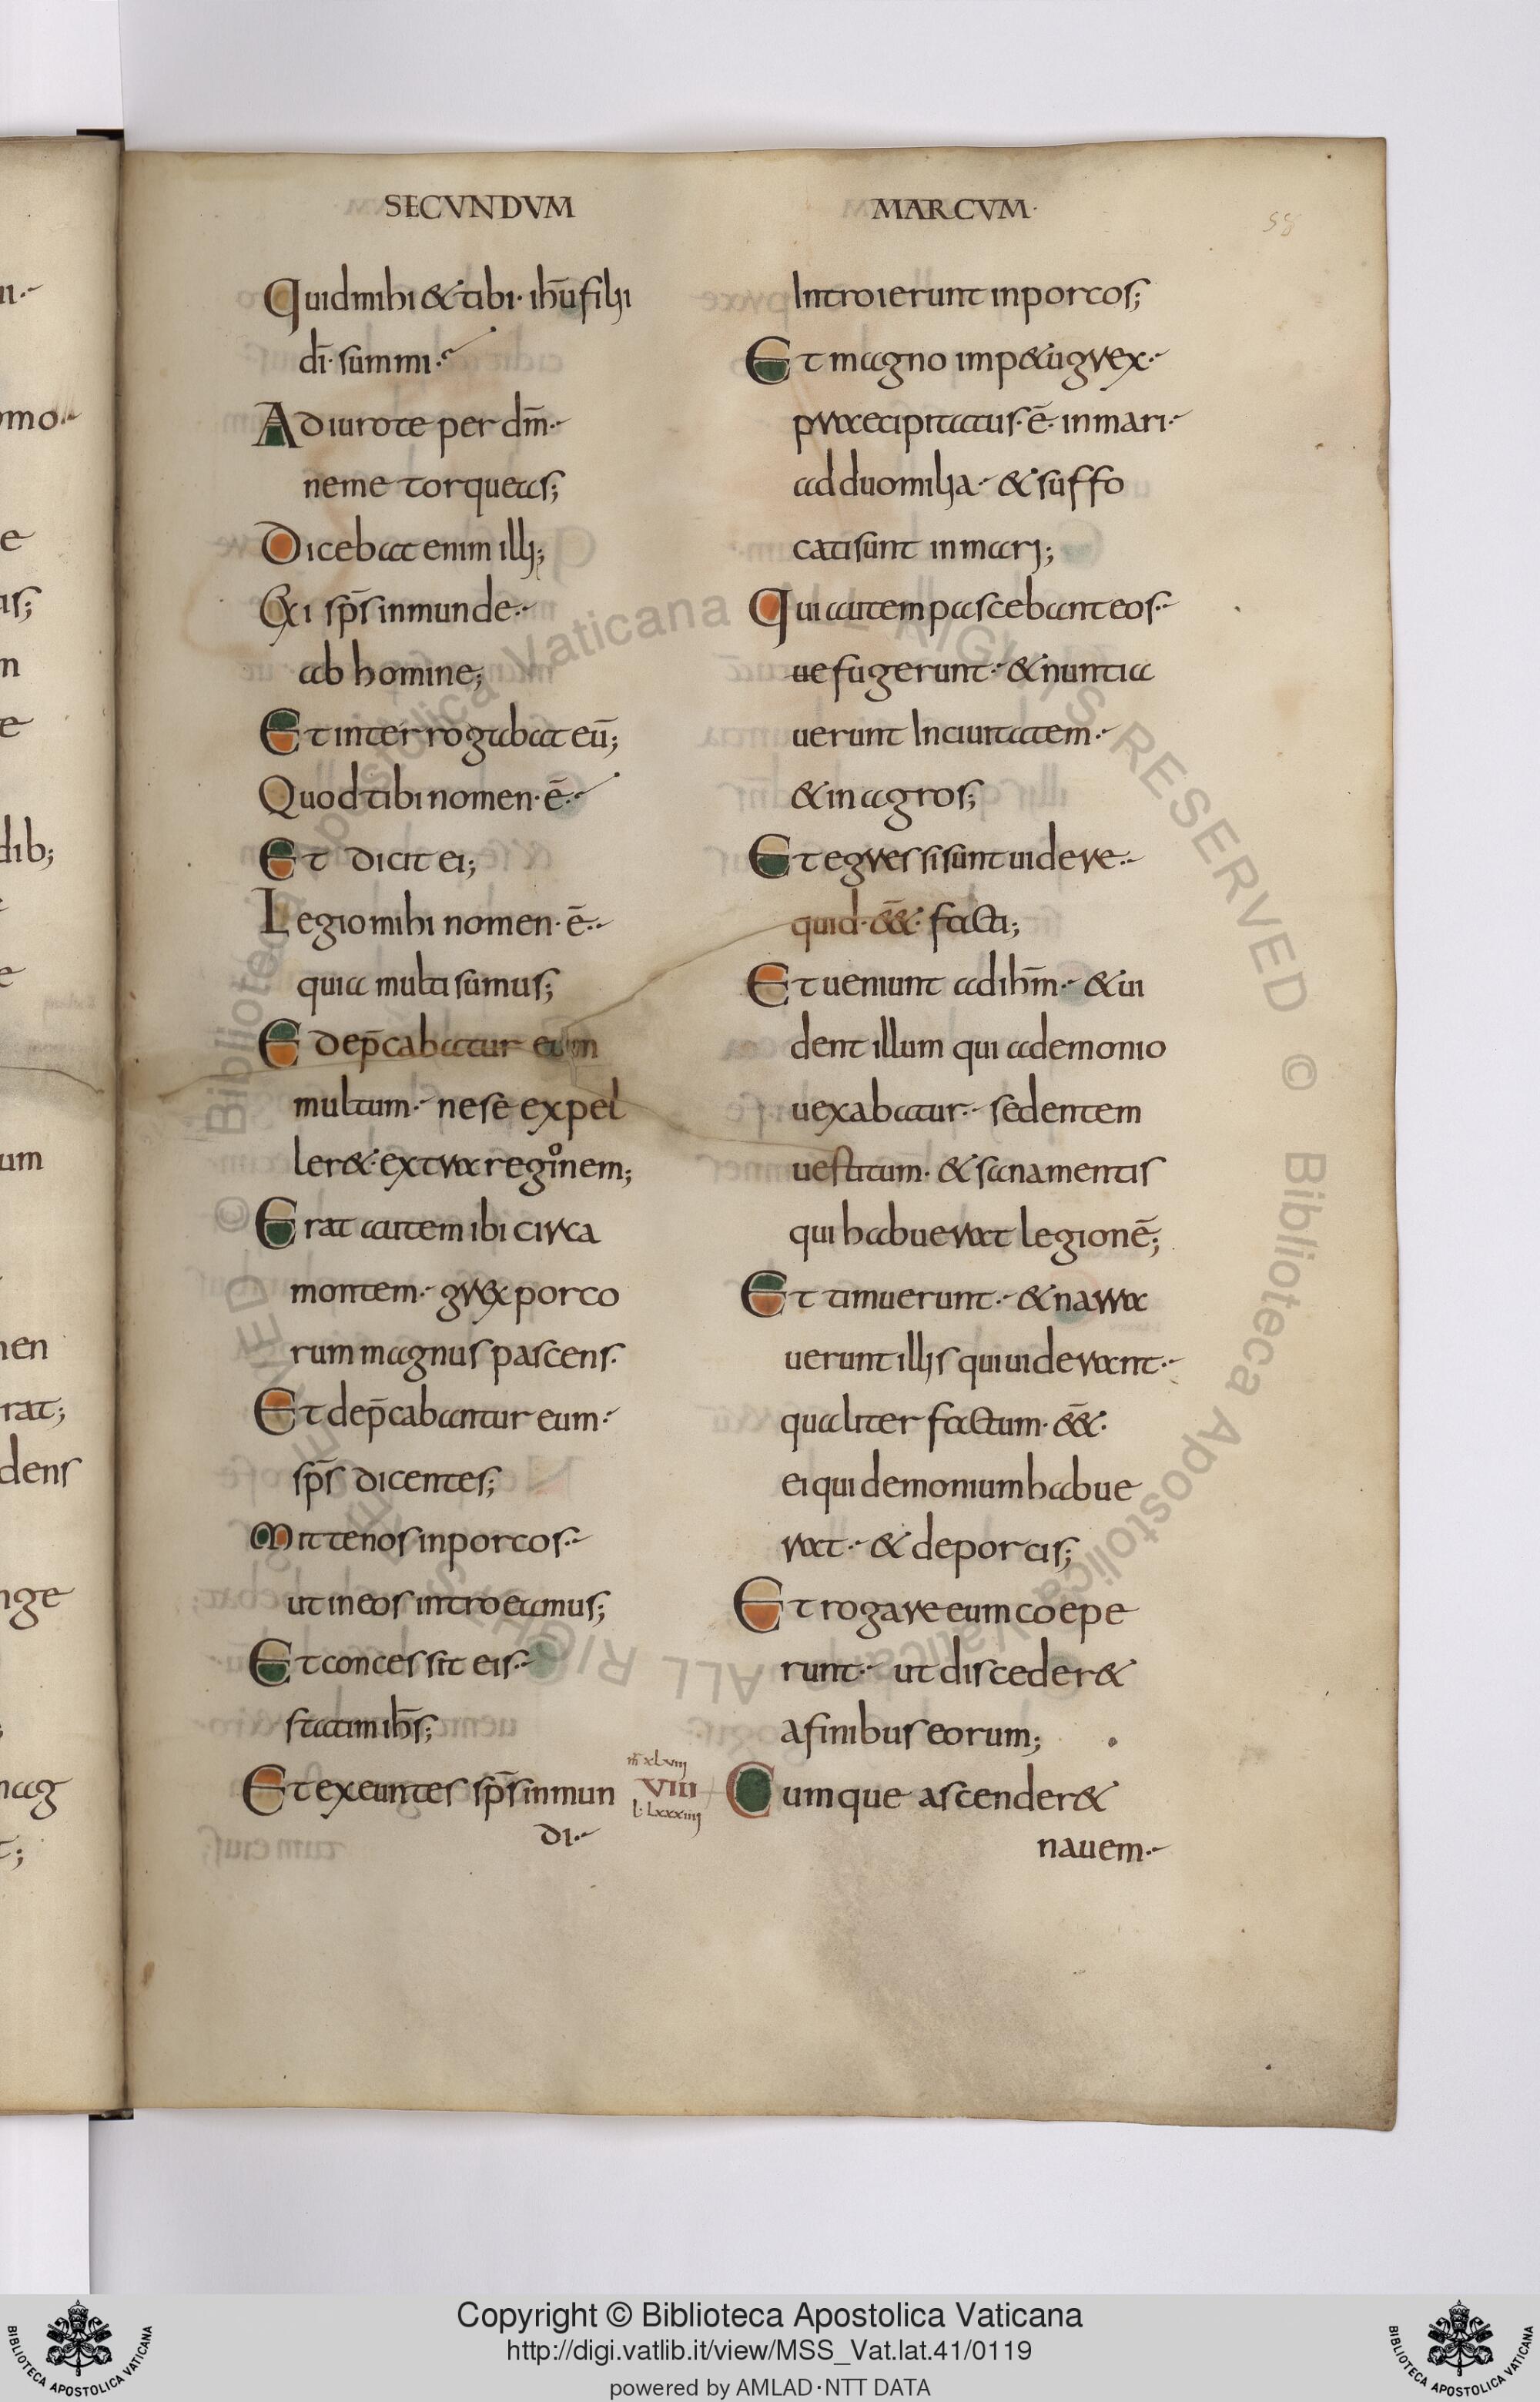 SECVNDVM
MARCVM·
58
Quid mihi & tibi· ihu fili
di· summi·
Adiuro te per dm·
ne me torqueas;
Dicebat enim illi;
Exi sps inmunde·
ab homine;
Et interrogabat eū;
Quod tibi nomen· ē·
Et dicit ei;
Legio mihi nomen· ē·
quia multi sumus;
E dep̄cabatur eum
multum· ne se expel
ler&· extra regionem;
Erat autem ibi circa
montem· grex porco
rum magnus pascens·
Et dep̄cabantur eum·
sps dicentes;
Mitte nos in porcos·
ut in eos introeamus;
Et concessit eis·
statim ihs;
Et exeuntes sps inmun
di·
Introierunt in porcos;
Et magno imp&u grex·
praecipitatus· ē· in mari·
ad duo milia· & suffo
cati sunt in mari;
Qui autem pascebant eos·
fugerunt· & nuntia
uerunt In ciuitatem·
& in agros;
Et egressi sunt uidere·
quid· ēēt· facti;
Et ueniunt ad ihm· & ui
dent illum qui a demonio
uexabatur· sedentem
uestitum· & sanae mentis
qui habuerat legionē;
Et timuerunt· & narra
uerunt illis qui uiderant·
qualiter factum· ēēt·
ei qui demonium habue
rat· & de porcis;
Et rogare eum coepe
runt· ut disceder&
a finibus eorum;
m̄ xlviiij
VIII
l· lxxxiiij
Cumque ascender&
nauem·
Copyright © Biblioteca Apostolica Vaticana
http://digi.vatlib.it/view/MSS_Vat.lat.41/0119
powered by AMLAD·NTT DATA
BIBLIOTECA APOSTOLICA VATICANA
BIBLIOTECA APOSTOLICA VATICANA